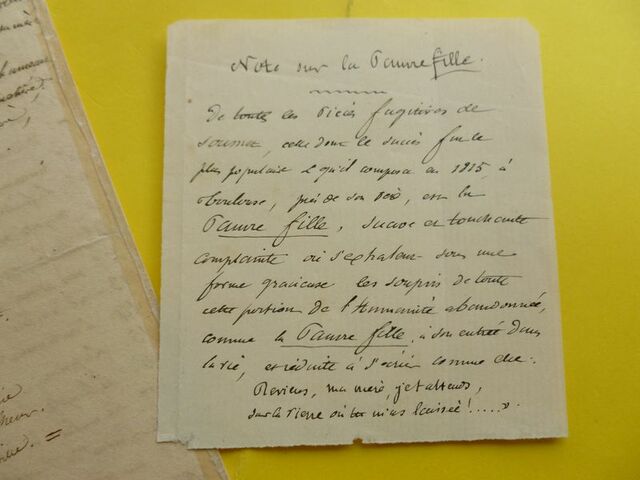 mère
Note sur la Pauvre fille.
De toutes les Pièces fugitives de
Soumet, celle dont le succès fut le
plus populaire & qu'il composa en 1815, à
Toulouse, près de son Père, est la
Pauvre fille, suave et touchante
complainte où s'exhalent sous une
forme gracieuse les soupirs de toute
cette portion de l'Humanité abandonnée,
comme la Pauvre fille, à son entrée dans
la vie, et réduite à s'écrier comme elle:
Reviens, ma mère, je t'attends,
sur la Pierre où tu m'as laissée!.....».